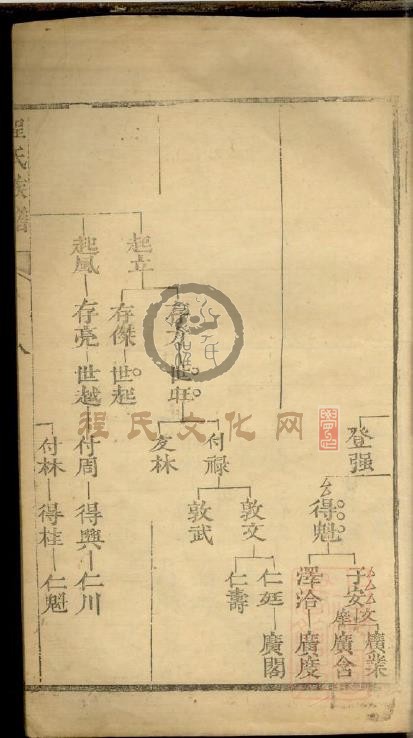 登强
得魁
子安
廣業
廣含
澤洽
廣度
起立
存
世旺
付禄
敦文
仁廷
廣閣
仁壽
敦武
友林
存傑
世起
起鳳
存亮
世越
付周
得興
仁川
付林
得桂
仁魁
程氏族譜
八
程氏文化网